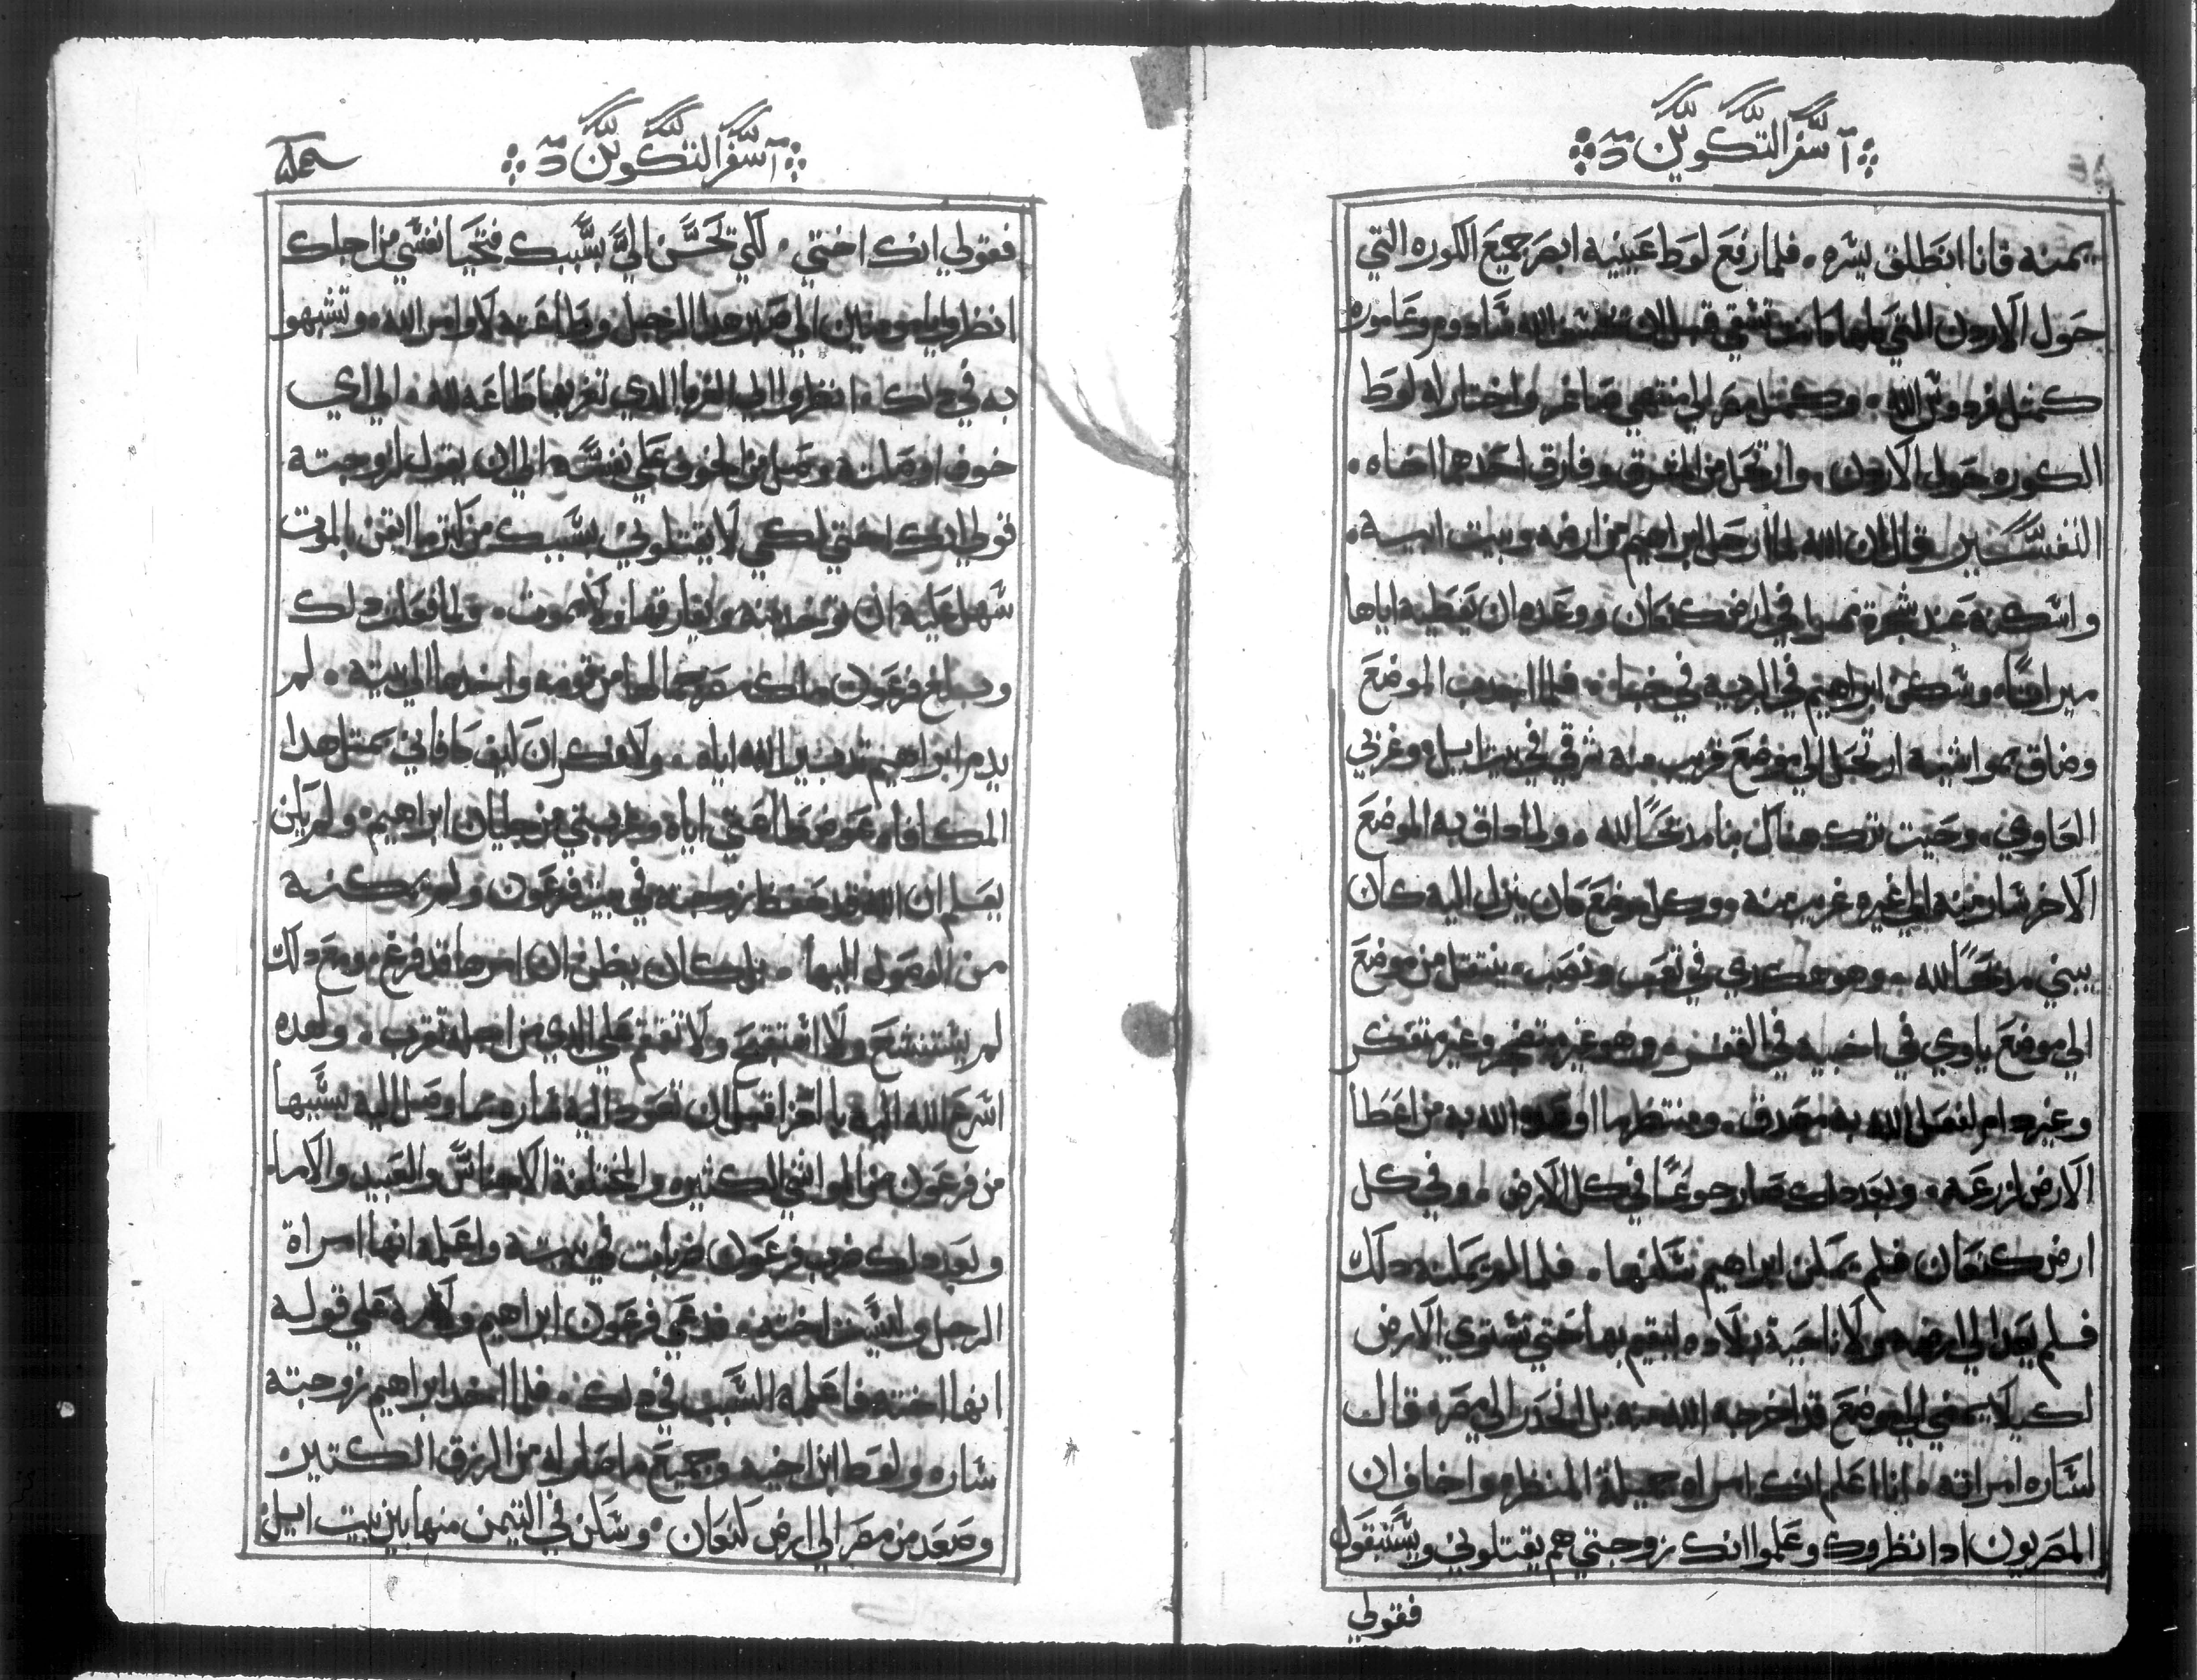 سفر التكوين
يمنه فانا انطلق يسره. فلما رفع لوط عينيه ابصر جميع الكوره التي
حول الاردن التي كانت تسقي قبل ان الله سادوم وعاموره
كمثل فردوس الله. وكمثل مصر الي منتهي صاغر واختار له لوط
الكوره حول الاردن. وارتحل من المشرق وفارق احدهما اخاه.
التفسير قال ان الله لما ارحل ابراهيم من ارضه وبيت ابيه.
واسكنه عند شجرة ممرا في ارض كنعان ووعده ان يعطيه اياها
ميراثا. وسكن ابراهيم في البريه في خباه. فلما اجدب الموضع
وضاق بمواشيه ارتحل الي موضع قريب منه شرقي في بيت ايل. وغربي
العاوي. وحيث ترك هناك بنا مدبحًا لله. ولما داق به الموضع
الاخر سار منه الي غيره غريب منه وكل موضع كان ينزل اليه كان
يبني مدبحًا لله. وهو هكدي في تعب ونصب. ينتقل من موضع
الي موضع ياوي في اخبيه في القفر. وهو غير متضجر وغير متفكر
وغير دام لفعل الله به مصدق. ومنتظر ما اوعده الله به من اعطا
الارض لزرعه. وبعد دلك صار جوعًا في كل الارض. وفي كل
ارض كنعان فلم يمكن ابراهيم سكنها. فلما لم يمكنه دلك
فلم يعد الي ارضه ولا ناحية بلاده ليقيم بها حتي تستوي الارض
لكيلا يمضي الي موضع قد اخرجه الله منه بل انحدر الي مصر. قال
لساره امراته. انا اعلم انك امراه جميلة المنظر. واخاف ان
المصريون ادا نظروك وعلموا انك زوجتي هم يقتلوني ويستبقوك
فقولي
سفر التكوين
فقولي انك اختي. لكي تحسن الي بسببك فتحيا نفسي من اجلك
انظروا يا مومنين الي صبر هدا الرجل وطاعته لاوامر الله. وتشبهو
به في دلك. انظروا الي الغربا الدي تغربها طاعه لله. الي اي
خوف اوصلته وحصل من الخوف علي نفسه الي ان يقول لزوجته
قولي انك اختي لكي لا يقتلوني بسببك من كثر ما ايقن بالموت
سهل عليه ان توخد منه ويفارقها ولا يموت. ولما فعلت دلك
وبلغ فرعون ملك مصر جمالها من قومه واخدها الي بيته. لم
يدم ابراهيم تدبير الله اياه. ولا فكر ان كيف كافاني بمثل هدا
المكافاه عوض طاعتي اياه وغربتي من جليان ابراهيم. ولم يكن
يعلم ان الله قد حفظ زوجته في بيت فرعون ولم يمكنه
من الوصول اليها. بل كان يظن ان امرها قد فرغ. ومع دلك
لم يستشنع ولا استقبح ولا تقمقم علي الدي من اجله تغرب. ولعده
اسرع الله اليه بالعزا قبل ان تعود اليه ساره وما وصل اليه بسببها
من فرعون من المواشي الكثيره والمختلفة الاجناس والعبيد والاما.
وبعد دلك ضرب فرعون ضربات في بيته واعلمه انها امراة
الرجل وليست اخته. فدعي فرعون ابراهيم ولامه علي قوله
انها اخته فاعلمه السبب في دلك. فلما اخد ابراهيم زوجته
ساره ولوط ابن اخيه وجميع ما صار له من الرزق الكثير
وصعد من مصر الي ارض كنعان. وسكن في التيمن منها بين بيت ايل